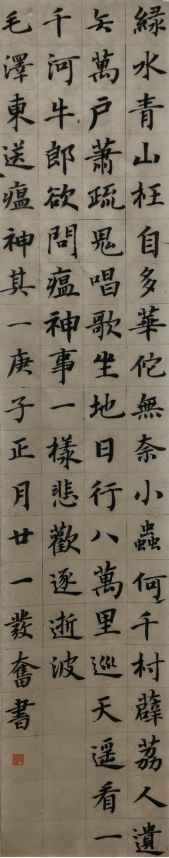 綠水青山枉自多華佗無奈小蟲何千村薜荔人遺
矢萬戶蕭疏鬼唱歌坐地日行八萬里巡天遥看一
千河牛郎欲問瘟神事一樣悲歡逐逝波
毛澤東送瘟神其一庚子正月廿一發奮書